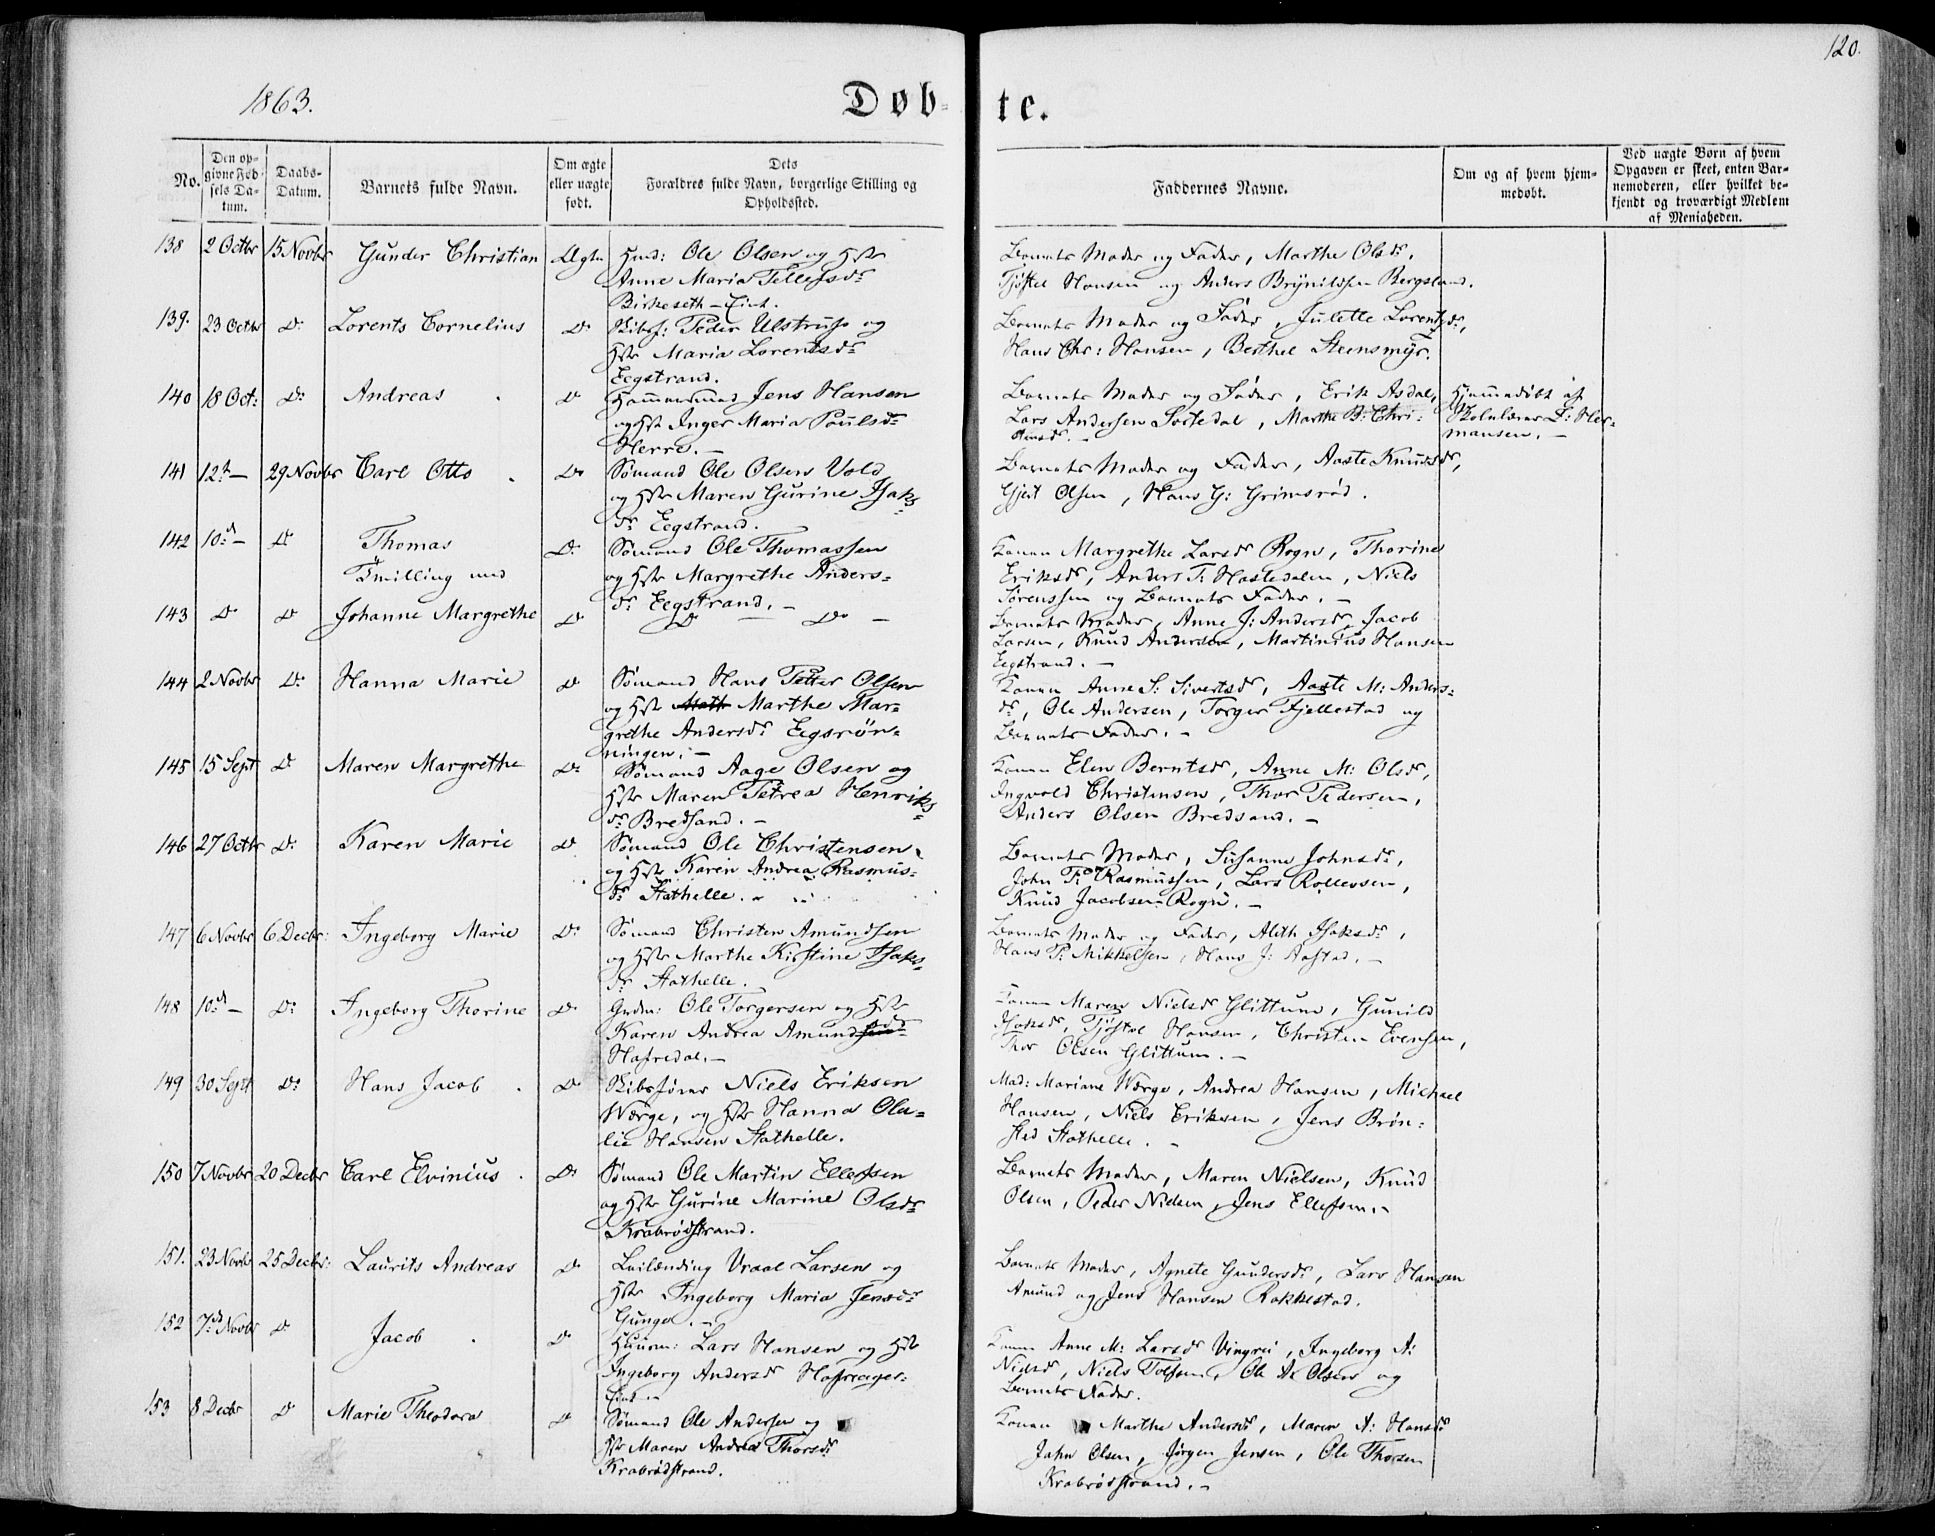 120.
1863.
Døb-
te.
No.
Den op-
givne Fød-
sels Da-
tum.
Daabs-
Datum.
Barnets fulde Navn.
Om ægte
eller uægte
født.
Dets
Forældres fulde Navn, borgerlige Stilling og
Opholdssted.
Faddernes Navne.
Om og af hvem hjem-
medøbt.
Ved uægte Børn af hvem
Opgaven er skeet, enten Bar-
nemoderen, eller hvilket be-
kjendt og troværdigt Medlem
af Menigheden.
138 2 Octbr 15 Novbr Gunder Christian Ægte Huusm: Ole Olsen og Hstr
Anne Maria Tellefsdr
Birkeseth-Eiet.
Barnets Moder og Fader, Marthe Olsdr,
Tjøstel Hansen og Anders Brynildsen Bergsland.
139. 23 Octbr Do Lorents Cornelius Do Skibsf: Peder Ulstrup og
Hstr Maria Lorentsdr
Eegstrand.
Barnets Moder og Fader, Julette Lorentsdr,
Hans Chr: Hansen, Berthel Steensmyr.
140 18 Oct: Do Andreas Do Hammersmed Jens Hansen
og Hstr Inger Maria Poulsdr
Herre.-
Barnets Moder og Fader, Erik Asdal,
Lars Andersen Sortedal, Marthe B: Chri-
stensdr.-
Hjemmedøbt af
Skolelærer L: Her-
mansen.-
141 12te- 29 Novbr Carl Otto Do Sømand Ole Olsen Vold
og Hstr Maren Gurine Isaks-
dr Eegstrand.
Barnets Moder og Fader, Aaste Knudsdr,
Gjert Olsen, Hans G: Grimsrød.
142 10de- Do Thomas
Tvilling med
Do Sømand Ole Thomassen
og Hstr Margrethe Anders-
dr Eegstrand.-
Konen Margrethe Larsdr Rogn, Thorine
Eriksdr, Anders T: Hastedalen, Niels
Sørenssen og Barnets Fader.-
143 Do Do Johanne Margrethe Do Do - Do -
Barnets Moder, Anne J: Andersdr, Jacob
Larsen, Knud Andersen, Martinius Hansen
Eegstrand.-
144 2 Novbr Do Hanna Marie Do Sømand Hans Petter Olsen
og Hstr Marthe Mar-
grethe Andersdr Eegsrøn-
ningen.-
Konen Anne S: Sivertsdr, Aaste M: Anders-
dr, Ole Andersen, Torger Fjellestad og
Barnets Fader.-
145 15 Sept Do Maren Margrethe Do Sømand Aage Olsen og
Hstr Maren Petrea Henriks-
dr Bredsand.-
Konen Elen Berntsdr, Anne M: Olsdr,
Ingvold Christensen, Thor Pedersen,
Anders Olsen Bredsand.-
146 27 Octbr Do Karen Marie Do Sømand Ole Christensen
og Hstr Karen Andrea Rasmus-
dr Stathelle.
Barnets Moder, Susanne Johnsdr,
John P: Rasmussen, Lars Rollevsen,
Knud Jacobsen Rogn.-
147 6 Novbr 6 Decbr: Ingeborg Marie Do Sømand Christen Amundsen
og Hstr Marthe Kirstine Isaks-
dr Stathelle.
Barnets Moder og Fader, Aleth Isaksdr,
Hans P: Mikkelsen, Hans J: Aasstad.-
148 10de- Do Ingeborg Thorine Do Grdm: Ole Torgersen og Hstr
Karen Andrea Amundsdr
Hafredal.-
Konen Maren Nielsdr Glittum, Gunild
Isaksdr, Tjøstol Hansen, Christen Evensen,
Thor Olsen Glittum.-
149 30 Sept Do Hans Jacob Do Skibsfører Niels Eriksen
Værge, og Hstr Hanna Ola-
lie Hansen Stathelle.
Mad: Mariane Værge, Andrea Hansen, Michael
Hansen, Niels Eriksen, Jens Brøn-
sted Stathelle.-
150 7 Novbr 20 Decbr Carl Elvinius Do Sømand Ole Martin Ellefsen
og Hstr Gurine Marine Olsdr
Krabrødstrand.
Barnets Moder, Maren Nielsen, Knud
Olsen, Peder Nielsen, Jens Ellefsen.-
151. 23 Novbr 25 Decbr: Laurits Andreas Do Leilænding Vraal Larsen og
Hstr Ingeborg Maria Jensdr
Gunge.-
Barnets Moder, Agnete Gundersdr, Lars Hansen
Amund og Jens Hansen Rakkestad.
152 7de Novbr Do Jacob Do Huusm: Lars Hansen og Hstr
Ingeborg Andersdr Hafreager-
Eiet.-
Konen Anne M: Larsdr Vingrei, Ingeborg A:
Nielsdr, Niels Tolfsen, Ole A: Olsen og
Barnets Fader.
153 8 Decbr Do Marie Theodora Do Sømand Ole Andersen og
Hstr Maren Andrea Thorsdr
Krabrødstrand.
Konen Marthe Andersdr, Maren A: Hansdr
John Olsen, Jørgen Jensen, Ole Thorsen
Krabrødstrand.-